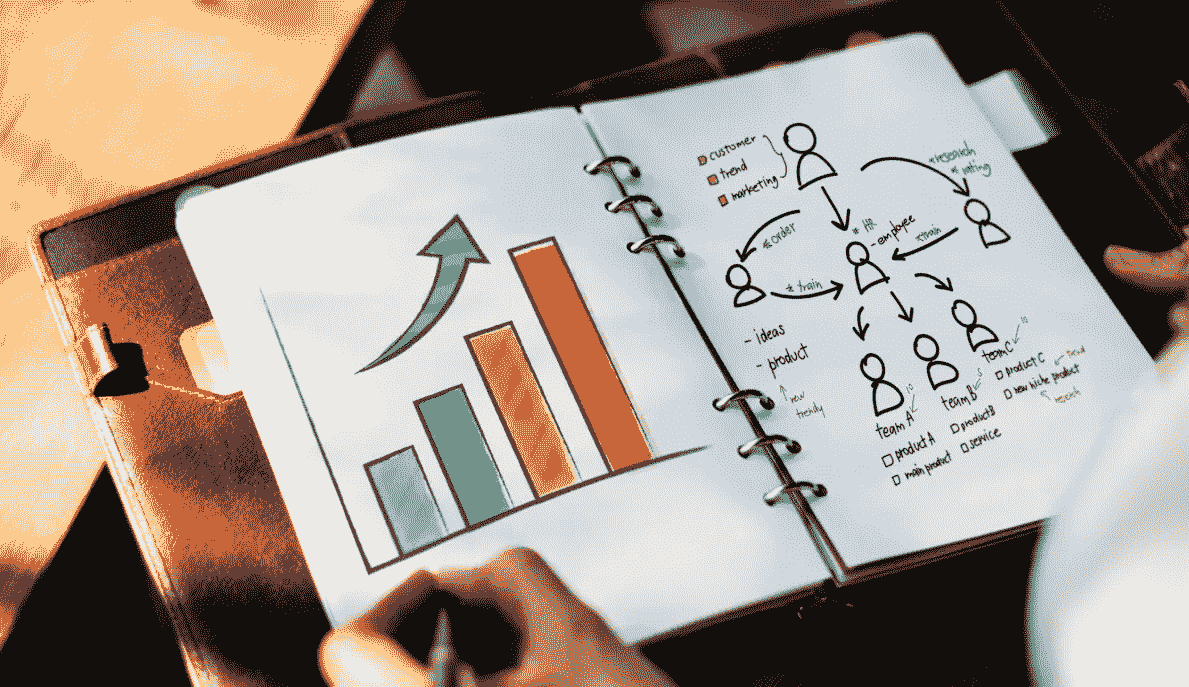 customer
trend
marketing
* research
* rating
* order
* HR
- employee
* train
* train
- ideas
- product
new
trendy
team A
10
team B
5
team C
10
product A
main product
product B
service
product C
trend
new niche product
research